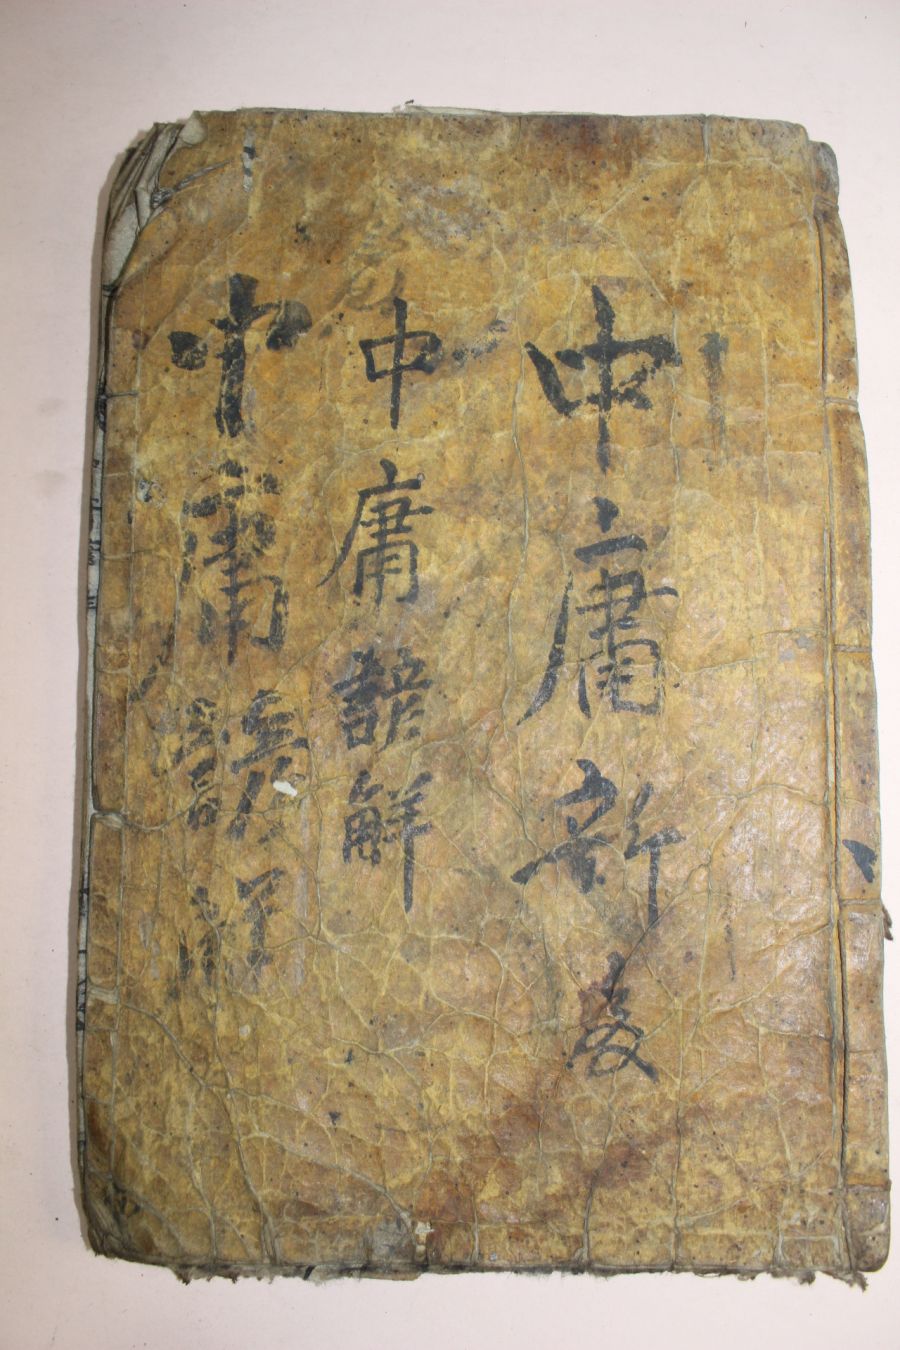 中庸新
中庸諺解
中庸諺解